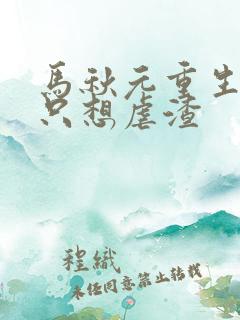 馬秋元重生
只想虐渣
程織
未经同意禁止转载